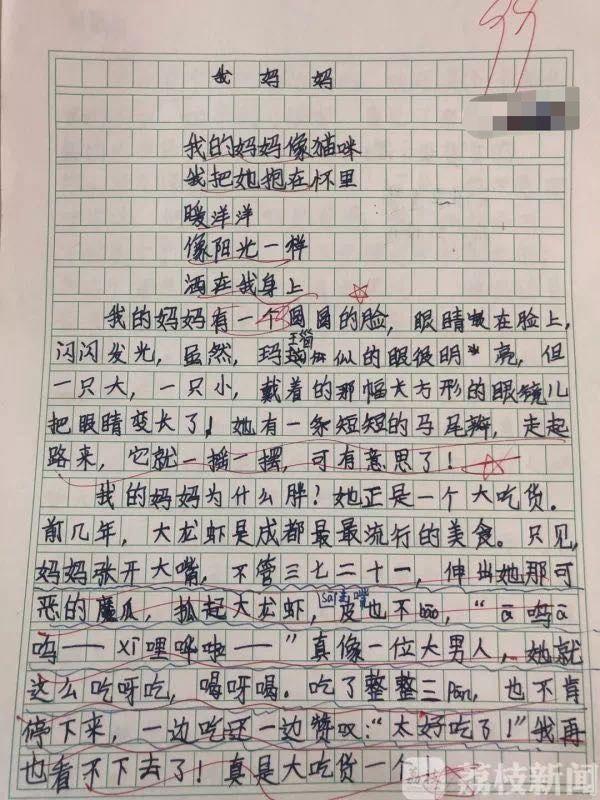 99
我妈妈
我的妈妈像猫咪
我把她抱在怀里
暖洋洋
像阳光一样
洒在我身上
我的妈妈有一个圆圆的脸，眼睛在脸上，
闪闪发光，虽然，玛似的眼很明亮，但
一只大，一只小，戴着的那幅大方形的眼镜儿
把眼睛变长了！她有一条短短的马尾辫，走起
路来，它就一摇一摆，可有意思了！
我的妈妈为什么胖？她正是一个大吃货。
前几年，大龙虾是成都最最流行的美食。只见，
妈妈张开大嘴，不管三七二十一，伸出她那可
恶的魔爪，抓起大龙虾，皮也不bāo，“ā呜ā
呜——xī哩哗啦——”真像一位大男人，她就
这么吃呀吃，喝呀喝。吃了整整三pán，也不肯
停下来，一边吃还一边赞叹：“太好吃了！”我再
也看不下去了！真是大吃货一个
荔枝新闻